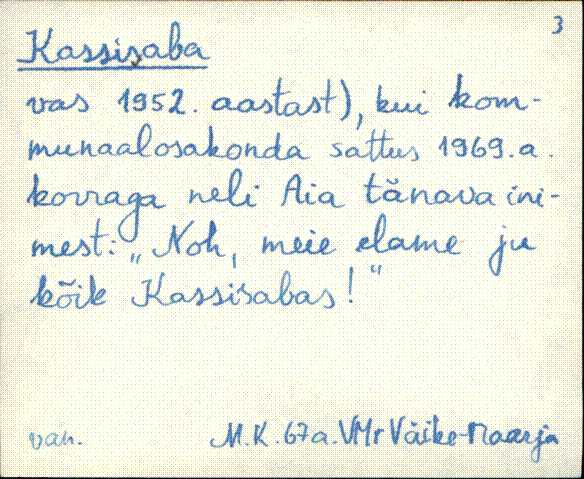 3
Kassisaba
vas 1952. aastast), kui kom-
munaalosakonda sattus 1969.a.
korraga neli Aia tänava ini-
mest: „Noh, meie elame ju
kõik Kassisabas!“
van. M.K. 67a. VMr Väike-Maarja